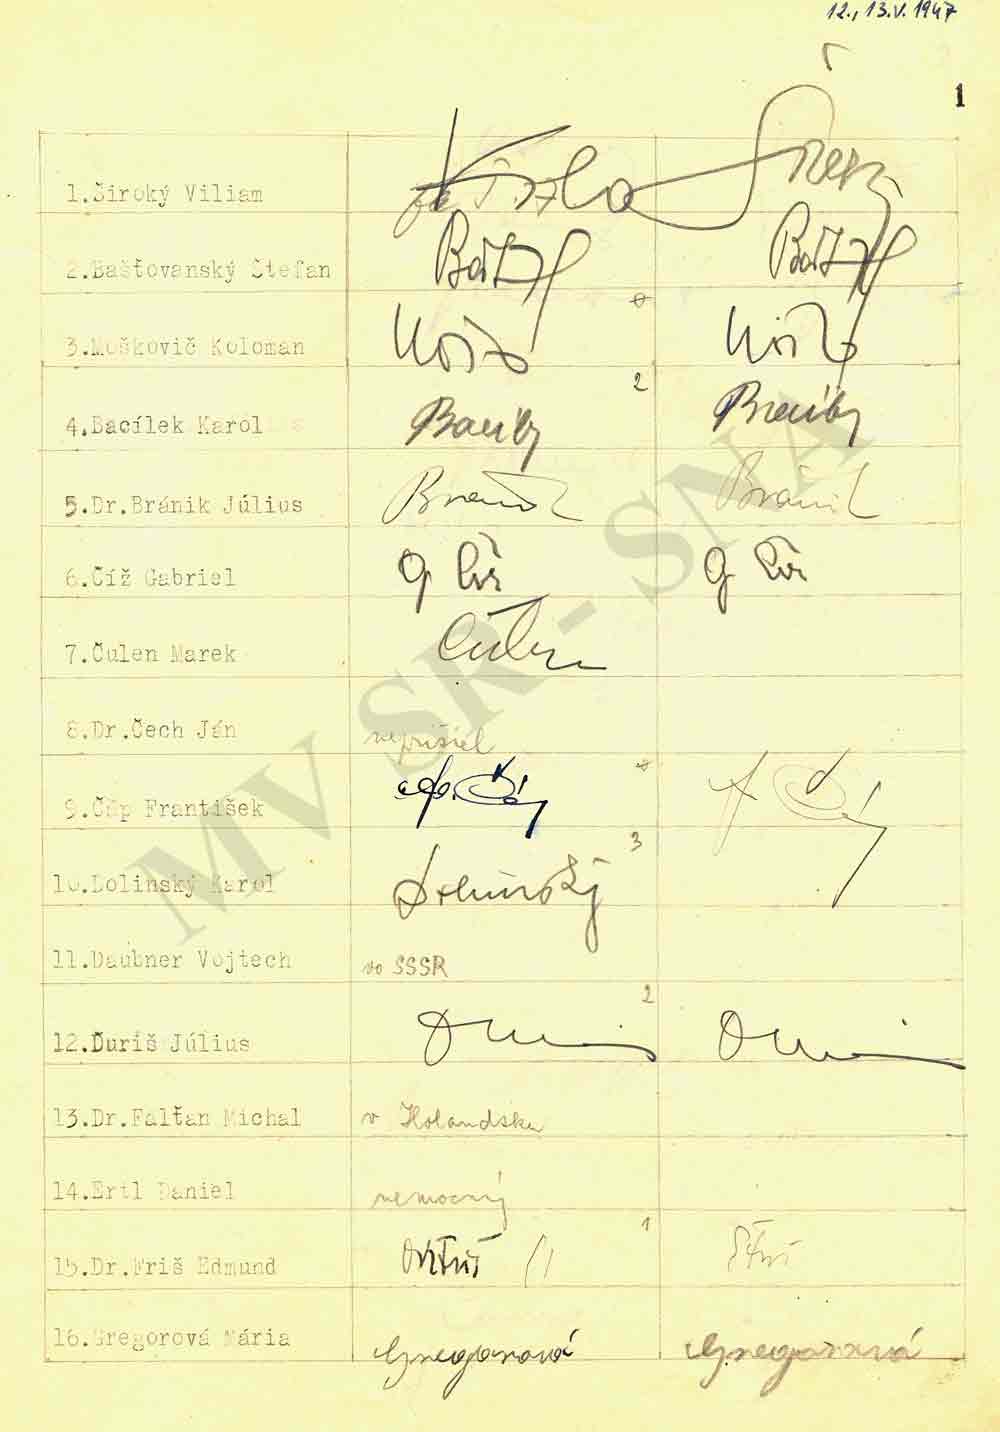 12., 13.V. 1947
1
1. Široký Viliam
2. Bašťovanský Štefan
3. Moškovič Koloman
4. Bacílek Karol
2
5. Dr. Bránik Július
6. Číž Gabriel
G Číž G Číž
7. Čulen Marek
Čulen
8. Dr. Čech Ján neprišiel
9. Čáp František
3
10. Dolinský Karol
Dolinský
11. Daubner Vojtech vo SSSR
2
12. Ďuriš Július
13. Dr. Falťan Michal v Holandsku
14. Ertl Daniel nemocný
1
15. Dr. Friš Edmund
16. Gregorová Mária Gregorová Gregorová
MV SR - SNA